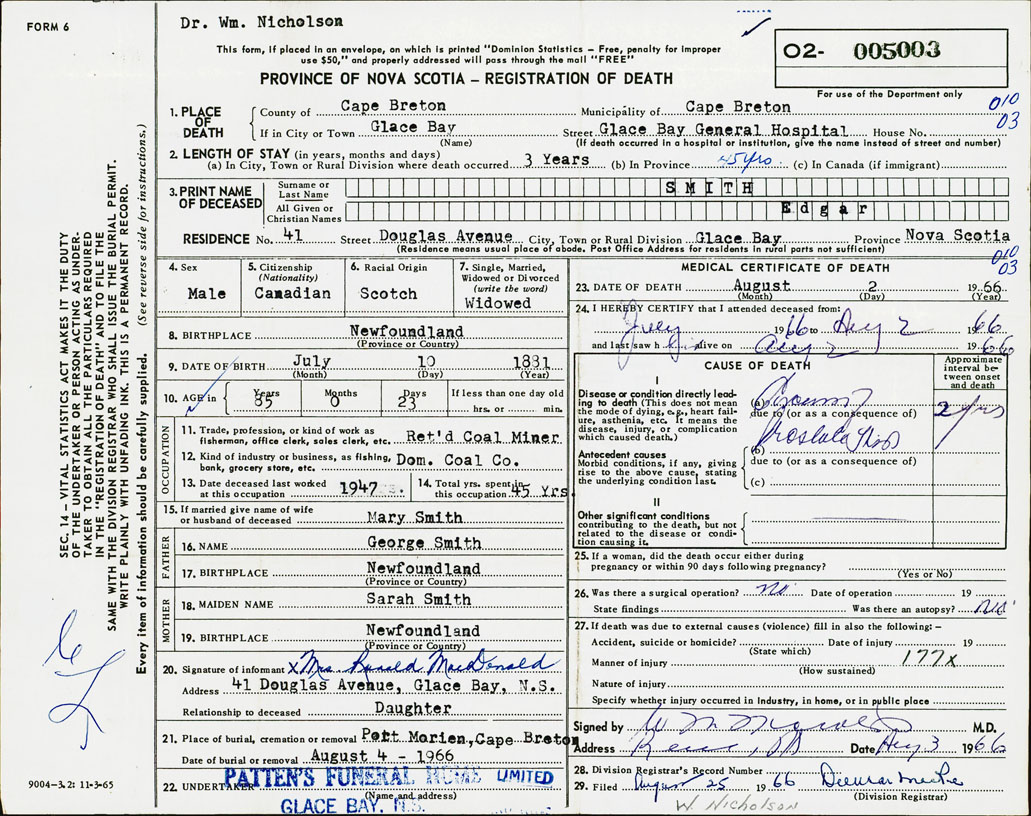 FORM 6
Dr. Wm. Nicholson
This form, if placed in an envelope, on which is printed "Dominion Statistics – Free, penalty for improper
use $50," and properly addressed will pass through the mail "FREE"
PROVINCE OF NOVA SCOTIA – REGISTRATION OF DEATH
O2- 005003
For use of the Department only
010
03
1. PLACE OF DEATH
County of Cape Breton Municipality of Cape Breton
If in City or Town Glace Bay Street Glace Bay General Hospital House No.
(Name) (If death occurred in a hospital or institution, give the name instead of street and number)
2. LENGTH OF STAY (in years, months and days)
(a) In City, Town or Rural Division where death occurred 3 Years (b) In Province 45 yrs (c) In Canada (if immigrant)
3. PRINT NAME OF DECEASED
Surname or Last Name SMITH
All Given or Christian Names Edgar
RESIDENCE No. 41 Street Douglas Avenue City, Town or Rural Division Glace Bay Province Nova Scotia
(Residence means usual place of abode. Post Office Address for residents in rural parts not sufficient)
010
03
4. Sex
Male
5. Citizenship
(Nationality)
Canadian
6. Racial Origin
Scotch
7. Single, Married,
Widowed or Divorced
(write the word)
Widowed
8. BIRTHPLACE Newfoundland
(Province or Country)
9. DATE OF BIRTH July 10 1881
(Month) (Day) (Year)
10. AGE in Years Months Days If less than one day old
85 0 23 hrs. or min.
OCCUPATION
11. Trade, profession, or kind of work as
fisherman, office clerk, sales clerk, etc. Ret'd Coal Miner
12. Kind of industry or business, as fishing,
bank, grocery store, etc. Dom. Coal Co.
13. Date deceased last worked
at this occupation 1947
14. Total yrs. spent in
this occupation 45 Yrs.
15. If married give name of wife
or husband of deceased Mary Smith
FATHER
16. NAME George Smith
17. BIRTHPLACE Newfoundland
(Province or Country)
MOTHER
18. MAIDEN NAME Sarah Smith
19. BIRTHPLACE Newfoundland
(Province or Country)
20. Signature of informant x Mrs. Ronald MacDonald
Address 41 Douglas Avenue, Glace Bay, N.S.
Relationship to deceased Daughter
21. Place of burial, cremation or removal Port Morien, Cape Breton
Date of burial or removal August 4 - 1966
22. UNDERTAKER
(Name and address)
PATTEN'S FUNERAL HOME LIMITED
GLACE BAY, N.S.
MEDICAL CERTIFICATE OF DEATH
23. DATE OF DEATH August 2 1966
(Month) (Day) (Year)
24. I HEREBY CERTIFY that I attended deceased from:
July 1966 to Aug 2 1966
and last saw h alive on Aug 2 1966
CAUSE OF DEATH
Approximate
interval be-
tween onset
and death
I
Disease or condition directly lead-
ing to death (This does not mean
the mode of dying, e.g., heart fail-
ure, asthenia, etc. It means the
disease, injury, or complication
which caused death.)
(a)
due to (or as a consequence of)
2 yrs
(b)
due to (or as a consequence of)
Antecedent causes
Morbid conditions, if any, giving
rise to the above cause, stating
the underlying condition last.
(c)
II
Other significant conditions
contributing to the death, but not
related to the disease or condi-
tion causing it.
25. If a woman, did the death occur either during
pregnancy or within 90 days following pregnancy?
(Yes or No)
26. Was there a surgical operation? no Date of operation 19
State findings Was there an autopsy? no
27. If death was due to external causes (violence) fill in also the following:–
Accident, suicide or homicide? Date of injury 19
(State which)
Manner of injury 177x
(How sustained)
Nature of injury
Specify whether injury occurred in Industry, in home, or in public place
Signed by M.D.
Address Date Aug 3 1966
28. Division Registrar's Record Number
29. Filed August 25 1966
(Division Registrar)
W. Nicholson
SEC. 14 – VITAL STATISTICS ACT MAKES IT THE DUTY
OF THE UNDERTAKER OR PERSON ACTING AS UNDER-
TAKER TO OBTAIN ALL THE PARTICULARS REQUIRED
IN THE "REGISTRATION OF DEATH" AND TO FILE THE
SAME WITH THE DIVISION REGISTRAR WHO SHALL ISSUE THE BURIAL PERMIT.
WRITE PLAINLY WITH UNFADING INK. THIS IS A PERMANENT RECORD.
Every item of information should be carefully supplied. (See reverse side for instructions.)
9004–3.2: 11-3-65